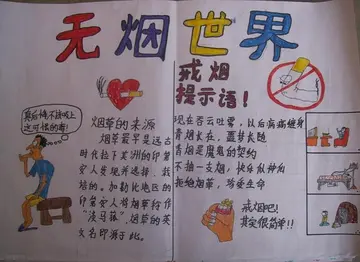 无烟世界
真后悔不该吸上
这可恨的毒！
烟草的来源
烟草最早是远古
时代拉丁美洲的印第
安人发现并选择、栽
培的。加勒比地区的
印第安人将烟草称作
“淡马菰”，烟草的英
文名即源于此。
戒烟
提示语！
现在吞云吐雾，以后病痛缠身
青烟长在，噩梦长随
香烟是魔鬼的契约
不抽一支烟，快乐似神仙
拒绝烟草，珍爱生命
戒烟吧！
其实很简单！！